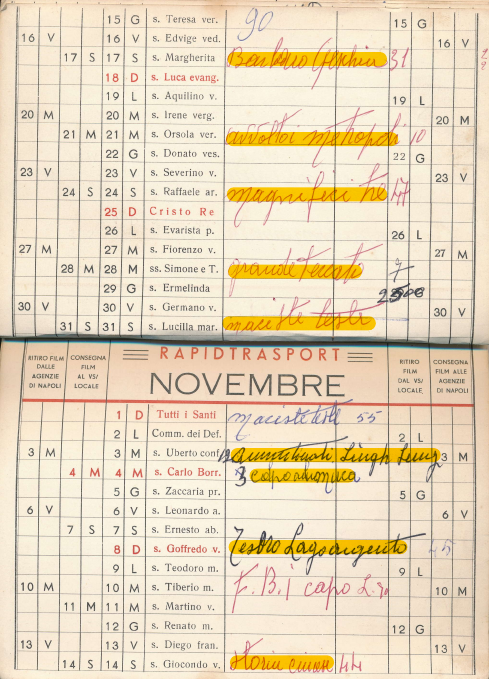 15 G s. Teresa ver. 90 15 G
16 V 16 V s. Edvige ved. 16 V
17 S 17 S s. Margherita 31
18 D s. Luca evang.
19 L s. Aquilino v. 19 L
20 M 20 M s. Irene verg. 20 M
21 M 21 M s. Orsola ver. avvoltoi metropoli 10
22 G s. Donato ves. 22 G
23 V 23 V s. Severino v. 23 V
24 S 24 S s. Raffaele ar. magnifici tre 47
25 D Cristo Re
26 L s. Evarista p. 26 L
27 M 27 M s. Fiorenzo v. 27 M
28 M 28 M ss. Simone e T. grande peccato 7
29 G s. Ermelinda
30 V 30 V s. Germano v. 30 V
31 S 31 S s. Lucilla mar. maciste
RAPIDTRASPORT
NOVEMBRE
RITIRO FILM DALLE AGENZIE DI NAPOLI
CONSEGNA FILM AL VS/ LOCALE
RITIRO FILM DAL VS/ LOCALE
CONSEGNA FILM ALLE AGENZIE DI NAPOLI
1 D Tutti i Santi maciste 55
2 L Comm. dei Def. 2 L
3 M 3 M s. Uberto conf. 3 M
4 M 4 M s. Carlo Borr.
5 G s. Zaccaria pr. 5 G
6 V 6 V s. Leonardo a. 6 V
7 S 7 S s. Ernesto ab.
8 D s. Goffredo v. Tesoro Lago argento 45
9 L s. Teodoro m. 9 L
10 M 10 M s. Tiberio m. F.B.i capo 10 M
11 M 11 M s. Martino v.
12 G s. Renato m. 12 G
13 V 13 V s. Diego fran. 13 V
14 S 14 S s. Giocondo v. storia cinese 44